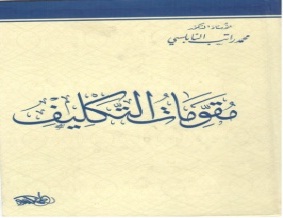 للأستاذ الدكتور
محمد راتب النابلسي
مُقَوِّمَاتُ التَّكْلِيفِ